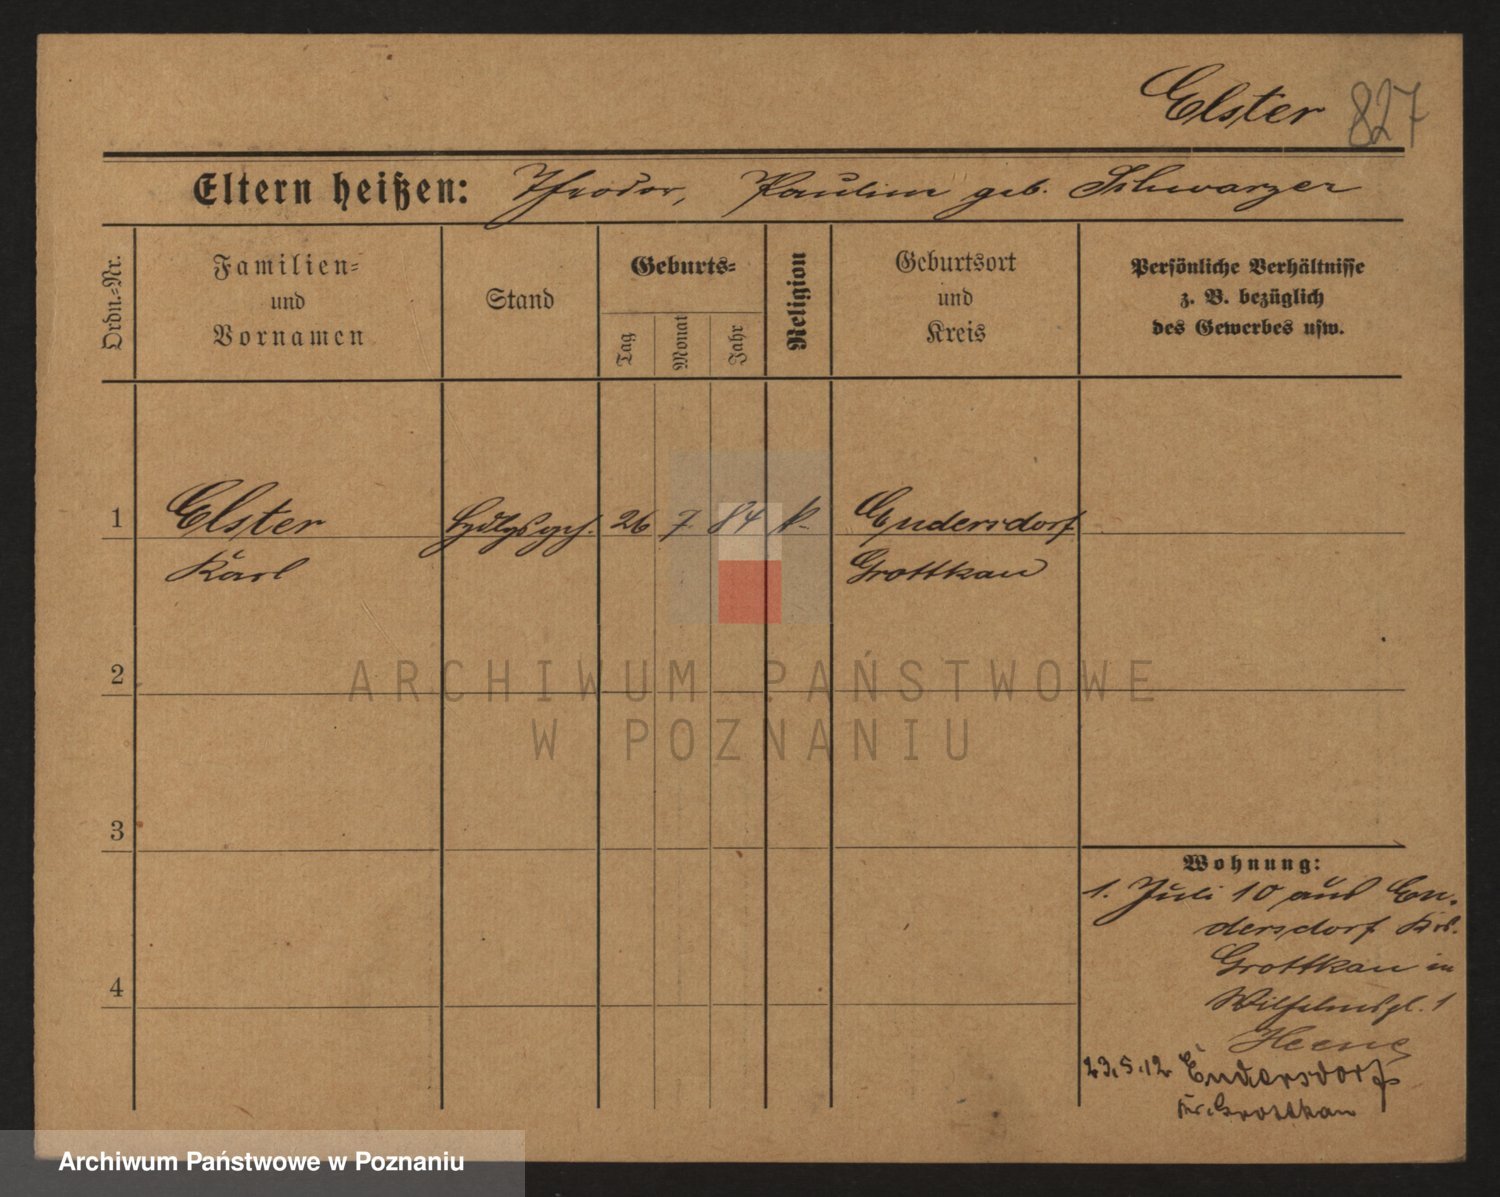 Elster 827
Eltern heißen: Theodor, Pauline geb. Schwarzer
Ordn.-Nr.
Familien-
und
Vornamen
Stand
Geburts-
Tag
Monat
Jahr
Religion
Geburtsort
und
Kreis
Persönliche Verhältnisse
z. B. bezüglich
des Gewerbes usw.
1 Elster Hdlgsgeh. 26 7 84 k. Endersdorf
Karl Grottkau
2
3
4
Wohnung:
1. Juli 10 aus En-
dersdorf Krs.
Grottkau in
Wilhelmspl. 1
23.5.12 Endersdorf
Kr. Grottkau
ARCHIWUM PAŃSTWOWE
W POZNANIU
Archiwum Państwowe w Poznaniu